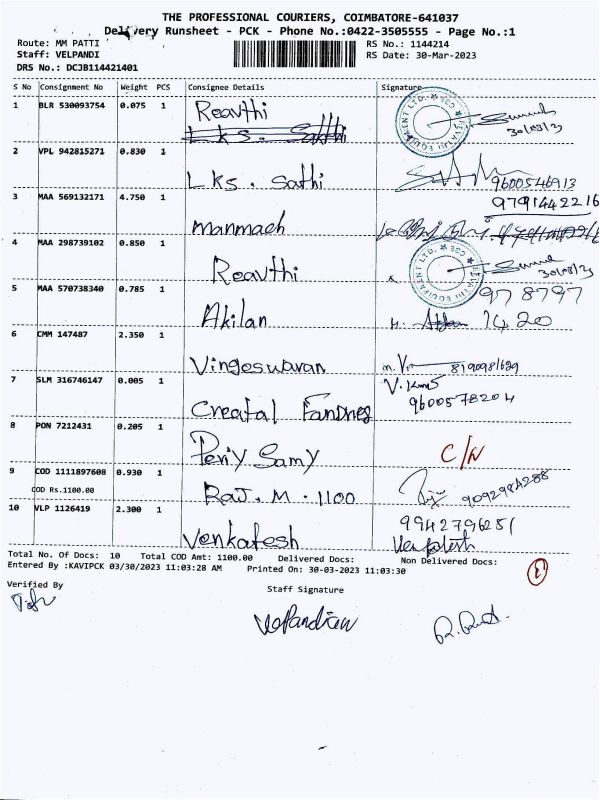 THE PROFESSIONAL COURIERS, COIMBATORE-641037
Delivery Runsheet - PCK - Phone No.:0422-3505555 - Page No.:1
Route: MM PATTI
RS No.: 1144214
Staff: VELPANDI
RS Date: 30-Mar-2023
DRS No.: DCJB114421401
S No Consignment No Weight PCS Consignee Details Signature
1 BLR 530093754 0.075 1 Reavthi
Lks. Sathi
30/03/23
2 VPL 942815271 0.830 1 Lks. Sathi 9600546913
3 MAA 569132171 4.750 1 manmach 9791442216
4 MAA 298739102 0.850 1 Reavthi 30/03/23
5 MAA 570738340 0.785 1 Akilan 978797
1420
6 CMM 147487 2.350 1 Vingeswaran 8190981689
7 SLM 316746147 0.005 1 Creatal V. Kumar
9600578204
8 PON 7212431 0.205 1 Periy Samy C/N
9 COD 1111897608 0.930 1 Raj. M. 1100 9092984288
COD Rs.1100.00
10 VLP 1126419 2.300 1 Venkatesh 9942796251
Venkatesh
Total No. Of Docs: 10 Total COD Amt: 1100.00 Delivered Docs: Non Delivered Docs:
Entered By :KAVIPCK 03/30/2023 11:03:28 AM Printed On: 30-03-2023 11:03:30
Verified By
Staff Signature
VelPandian